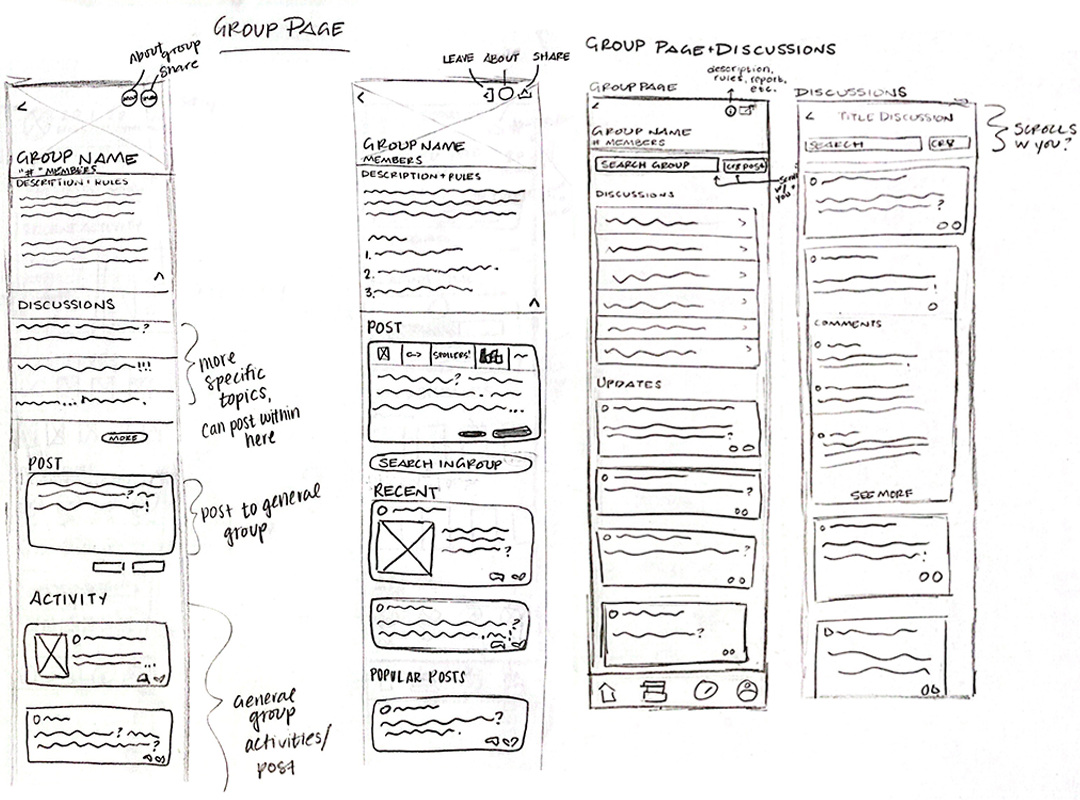 GROUP PAGE
About group
share
<
GROUP NAME
"#" MEMBERS
DESCRIPTION + RULES
DISCUSSIONS
?
!!!
MORE
more
specific
topics,
can post within
here
POST
?
!
post to general
group
ACTIVITY
...
?
?
general
group
activities/
post
LEAVE ABOUT SHARE
<
GROUP NAME
MEMBERS
DESCRIPTION + RULES
1.
2.
3.
POST
SPOILERS!
?
...
SEARCH IN GROUP
RECENT
?
?
POPULAR POSTS
?
GROUP PAGE + DISCUSSIONS
GROUP PAGE
description,
rules, report,
etc.
<
GROUP NAME
# MEMBERS
SEARCH GROUP
DISCUSSIONS
>
>
>
>
>
>
UPDATES
?
?
?
?
DISCUSSIONS
<
TITLE DISCUSSION
SEARCH
SCROLLS
W YOU?
?
!
COMMENTS
SEE MORE